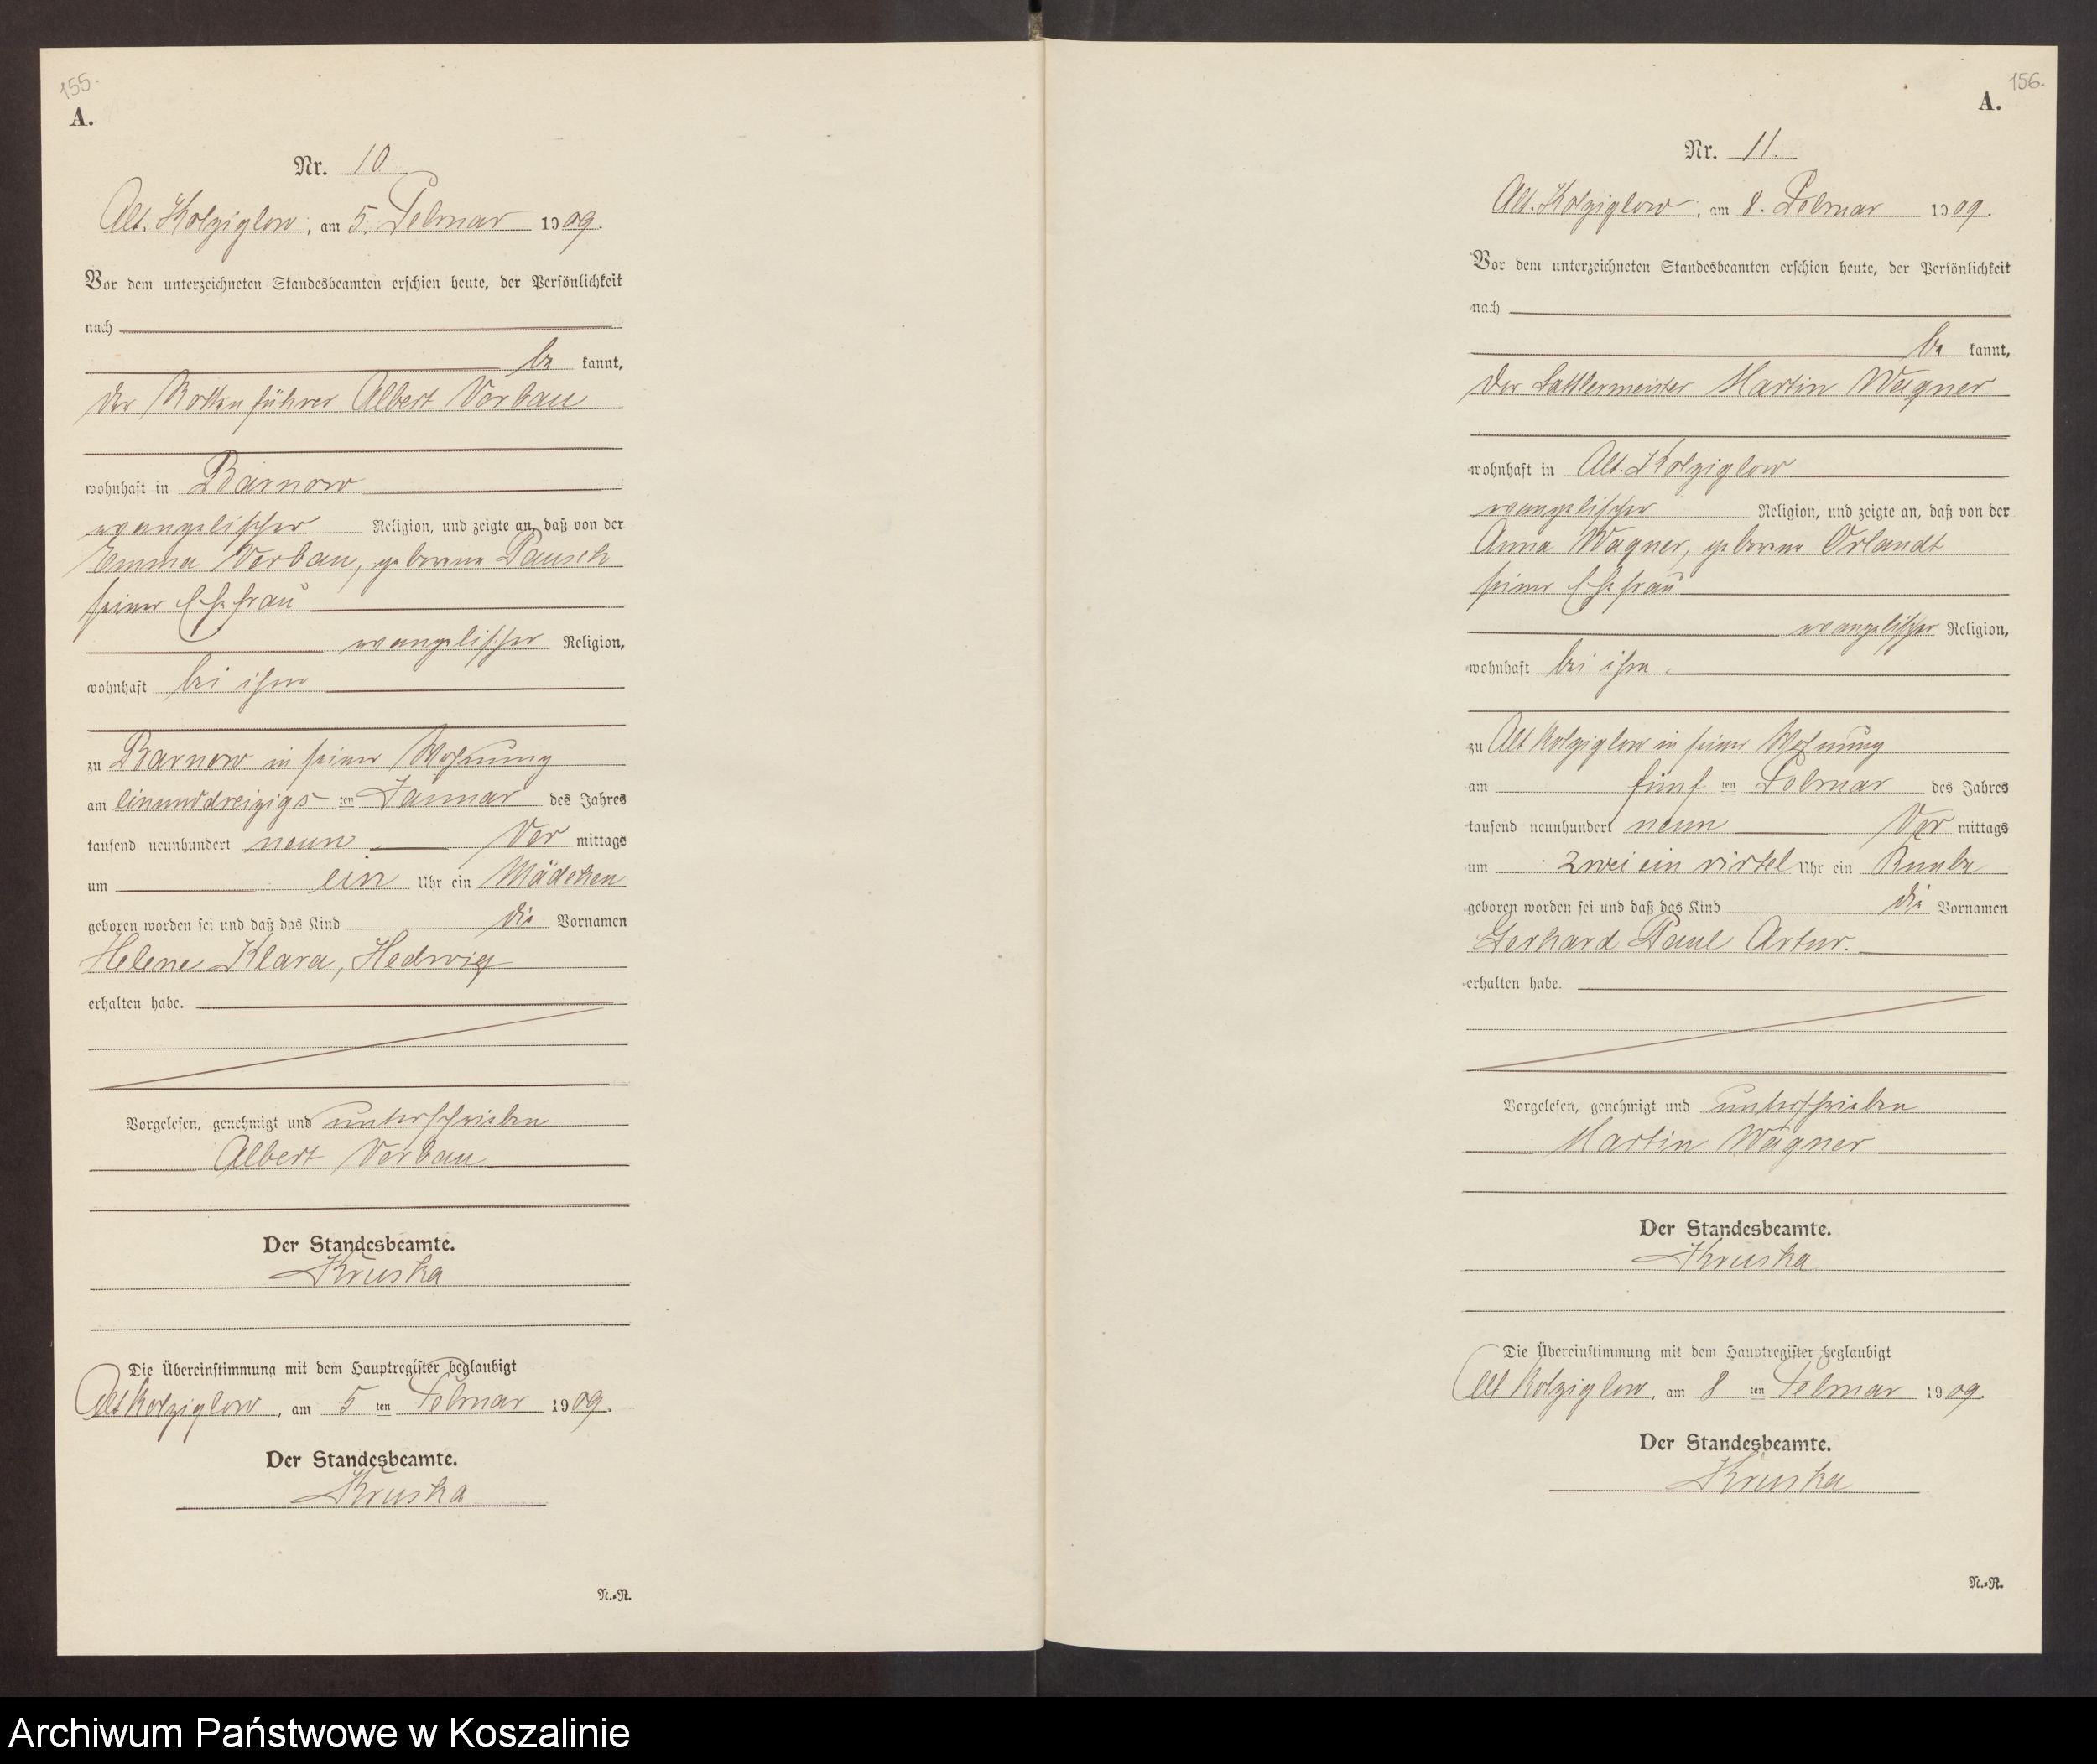 155.
A.
Nr. 10
Alt. Kolziglow, am 5. Februar 1909.
Vor dem unterzeichneten Standesbeamten erschien heute, der Persönlichkeit
nach
be kannt,
der Rottenführer Albert Vorbau
wohnhaft in Barnow
evangelischer Religion, und zeigte an, daß von der
Emma Vorbau, geborene Pausch
seiner Ehefrau
evangelischer Religion,
wohnhaft bei ihm
zu Barnow in seiner Wohnung
am einunddreizigs ten Januar des Jahres
tausend neunhundert neun Vor mittags
um ein Uhr ein Mädchen
geboren worden sei und daß das Kind die Vornamen
Helene Klara, Hedwig
erhalten habe.
Vorgelesen, genehmigt und unterschrieben
Albert Vorbau
Der Standesbeamte.
Kruska
Die Übereinstimmung mit dem Hauptregister beglaubigt
Alt Kolziglow, am 5 ten Februar 1909.
Der Standesbeamte.
Kruska
N.-N.
156.
A.
Nr. 11.
Alt. Kolziglow, am 8. Februar 1909.
Vor dem unterzeichneten Standesbeamten erschien heute, der Persönlichkeit
nach
be kannt,
der Sattlermeister Martin Wagner
wohnhaft in Alt. Kolziglow
evangelischer Religion, und zeigte an, daß von der
Anna Wagner, geborene Orlandt
seiner Ehefrau
evangelischer Religion,
wohnhaft bei ihm.
zu Alt Kolziglow in seiner Wohnung
am fünf ten Februar des Jahres
tausend neunhundert neun Vor mittags
um zwei ein virtel Uhr ein Knabe
geboren worden sei und daß das Kind die Vornamen
Gerhard Paul Artur.
erhalten habe.
Vorgelesen, genehmigt und unterschrieben
Martin Wagner
Der Standesbeamte.
Kruska
Die Übereinstimmung mit dem Hauptregister beglaubigt
Alt Kolziglow, am 8 ten Februar 1909.
Der Standesbeamte.
Kruska
N.-N.
Archiwum Państwowe w Koszalinie